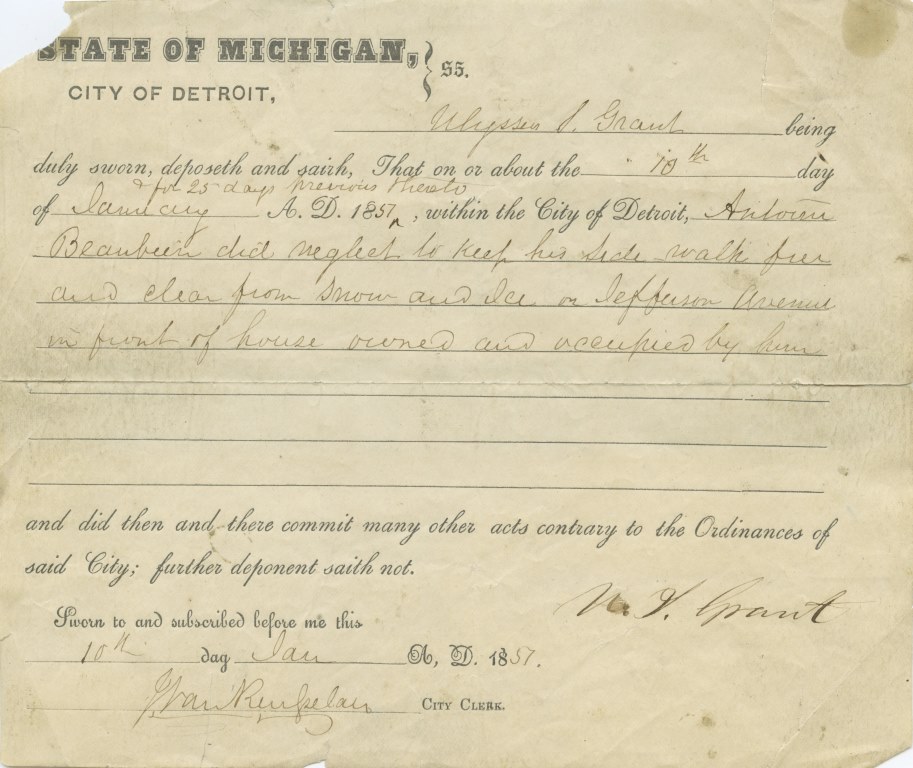 STATE OF MICHIGAN,
SS.
CITY OF DETROIT,
Ulysses S. Grant being
duly sworn, deposeth and saith, That on or about the 10th day
& for 25 days previous thereto
of January A. D. 1857 ^, within the City of Detroit, Antoien
Beaubein did neglect to keep his side walk free
and clear from snow and Ice on Jefferson Avenue
in front of house owned and occupied by him
and did then and there commit many other acts contrary to the Ordinances of
said City; further deponent saith not.
U. S. Grant
Sworn to and subscribed before me this
10th day Jan A, D. 1857.
CITY CLERK.